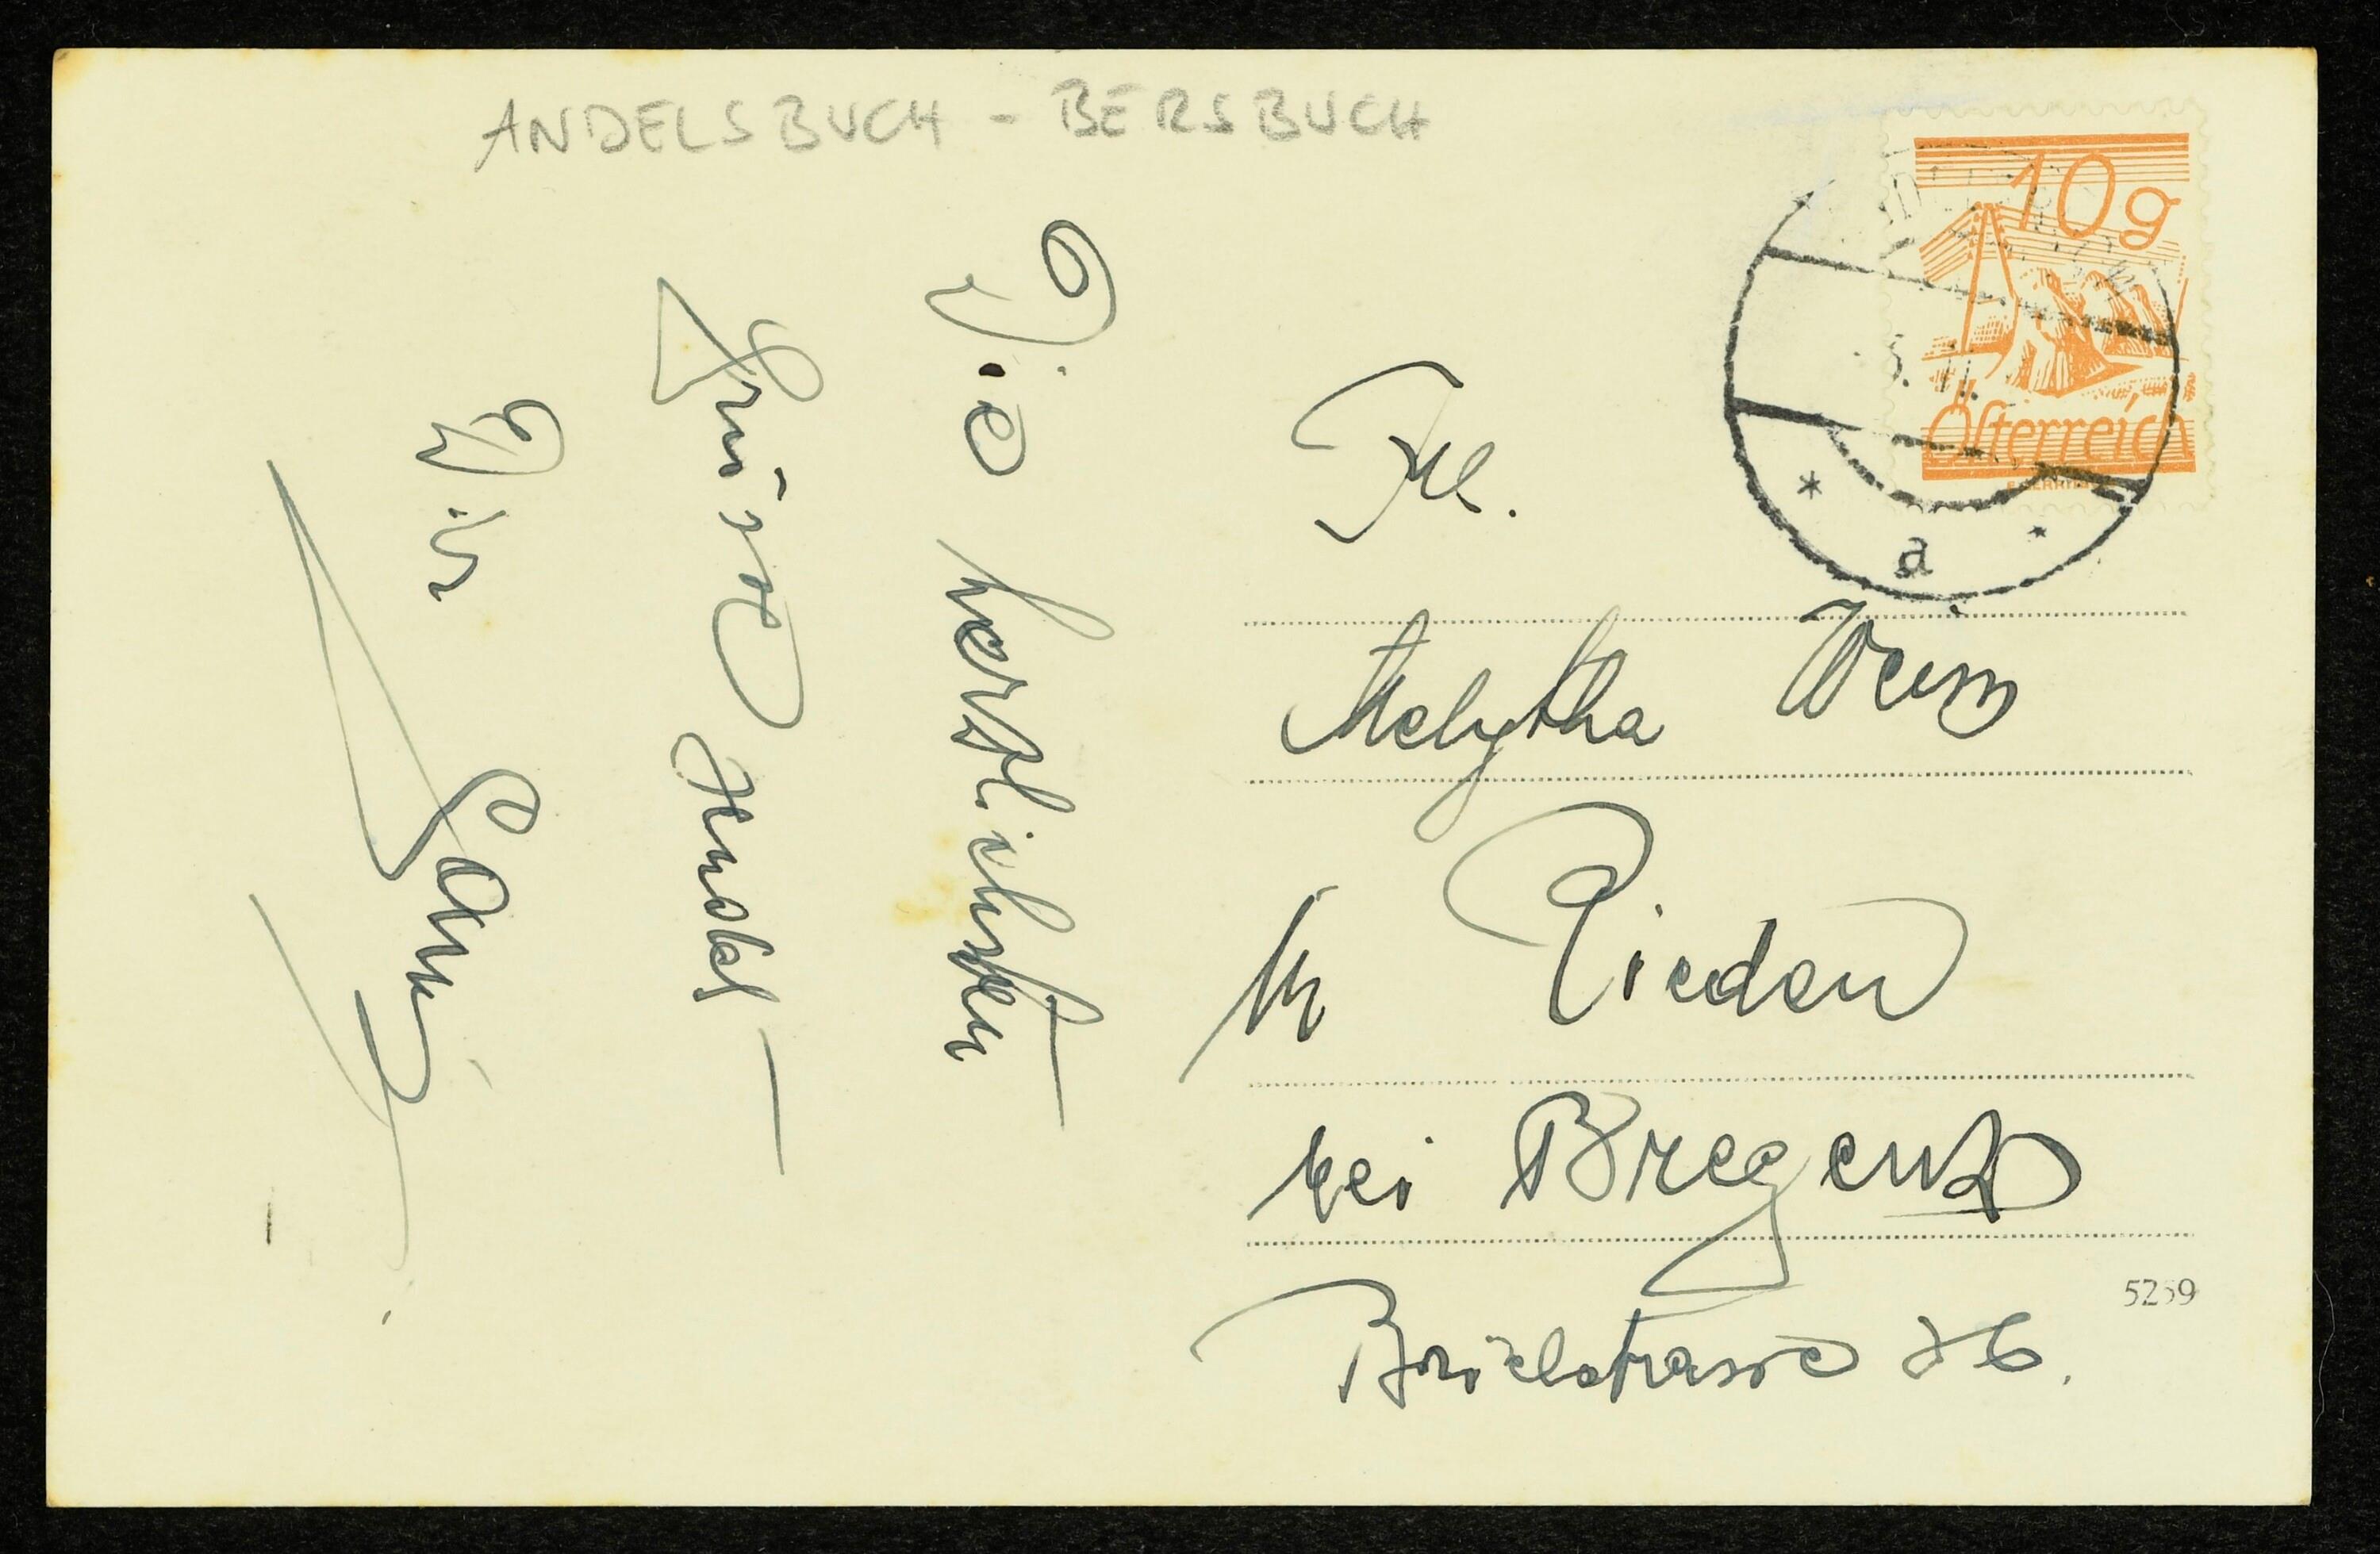 ANDELSBUCH - BERSBUCH
Die herzlichsten
Grüsse sendet
Dir
10g
Österreich
a
Frl.
Melytha
in Rieden
bei Bregenz
5259